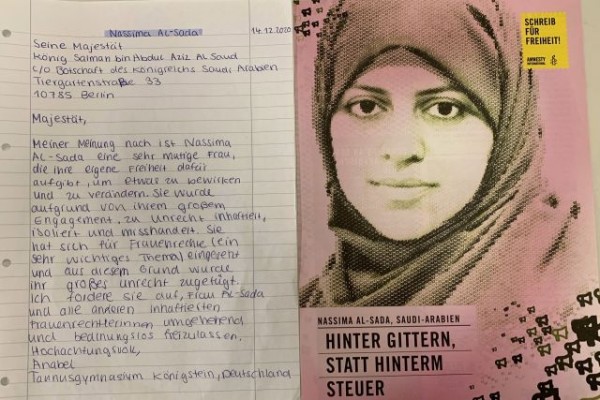 Nassima AL-Sada
14.12.2020
Seine Majestät
König Salman bin Abdul Aziz AL Saud
c/o Botschaft des Königreichs Saudi Arabien
Tiergartenstraße 33
10785 Berlin
Majestät,
Meiner Meinung nach ist Nassima
AL-Sada eine sehr mutige Frau,
die ihre eigene Freiheit dafür
aufgibt, um etwas zu bewirken
und zu verändern. Sie wurde
aufgrund von ihrem großem
Engagement, zu Unrecht inhaftiert,
isoliert und misshandelt. Sie
hat sich für Frauenrechte (ein
sehr wichtiges Thema) eingesetzt
und aus diesem Grund wurde
ihr großes unrecht zugefügt.
Ich fordere sie auf, Frau AL-Sada
und alle anderen inhaftierten
Frauenrechtlerinnen umgehend
und bedingungslos freizulassen.
Hochachtungsvoll,
Anabel
Taunusgymnasium Königstein, Deutschland
SCHREIB
FÜR
FREIHEIT!
AMNESTY
INTERNATIONAL
NASSIMA AL-SADA, SAUDI-ARABIEN
HINTER GITTERN,
STATT HINTERM
STEUER